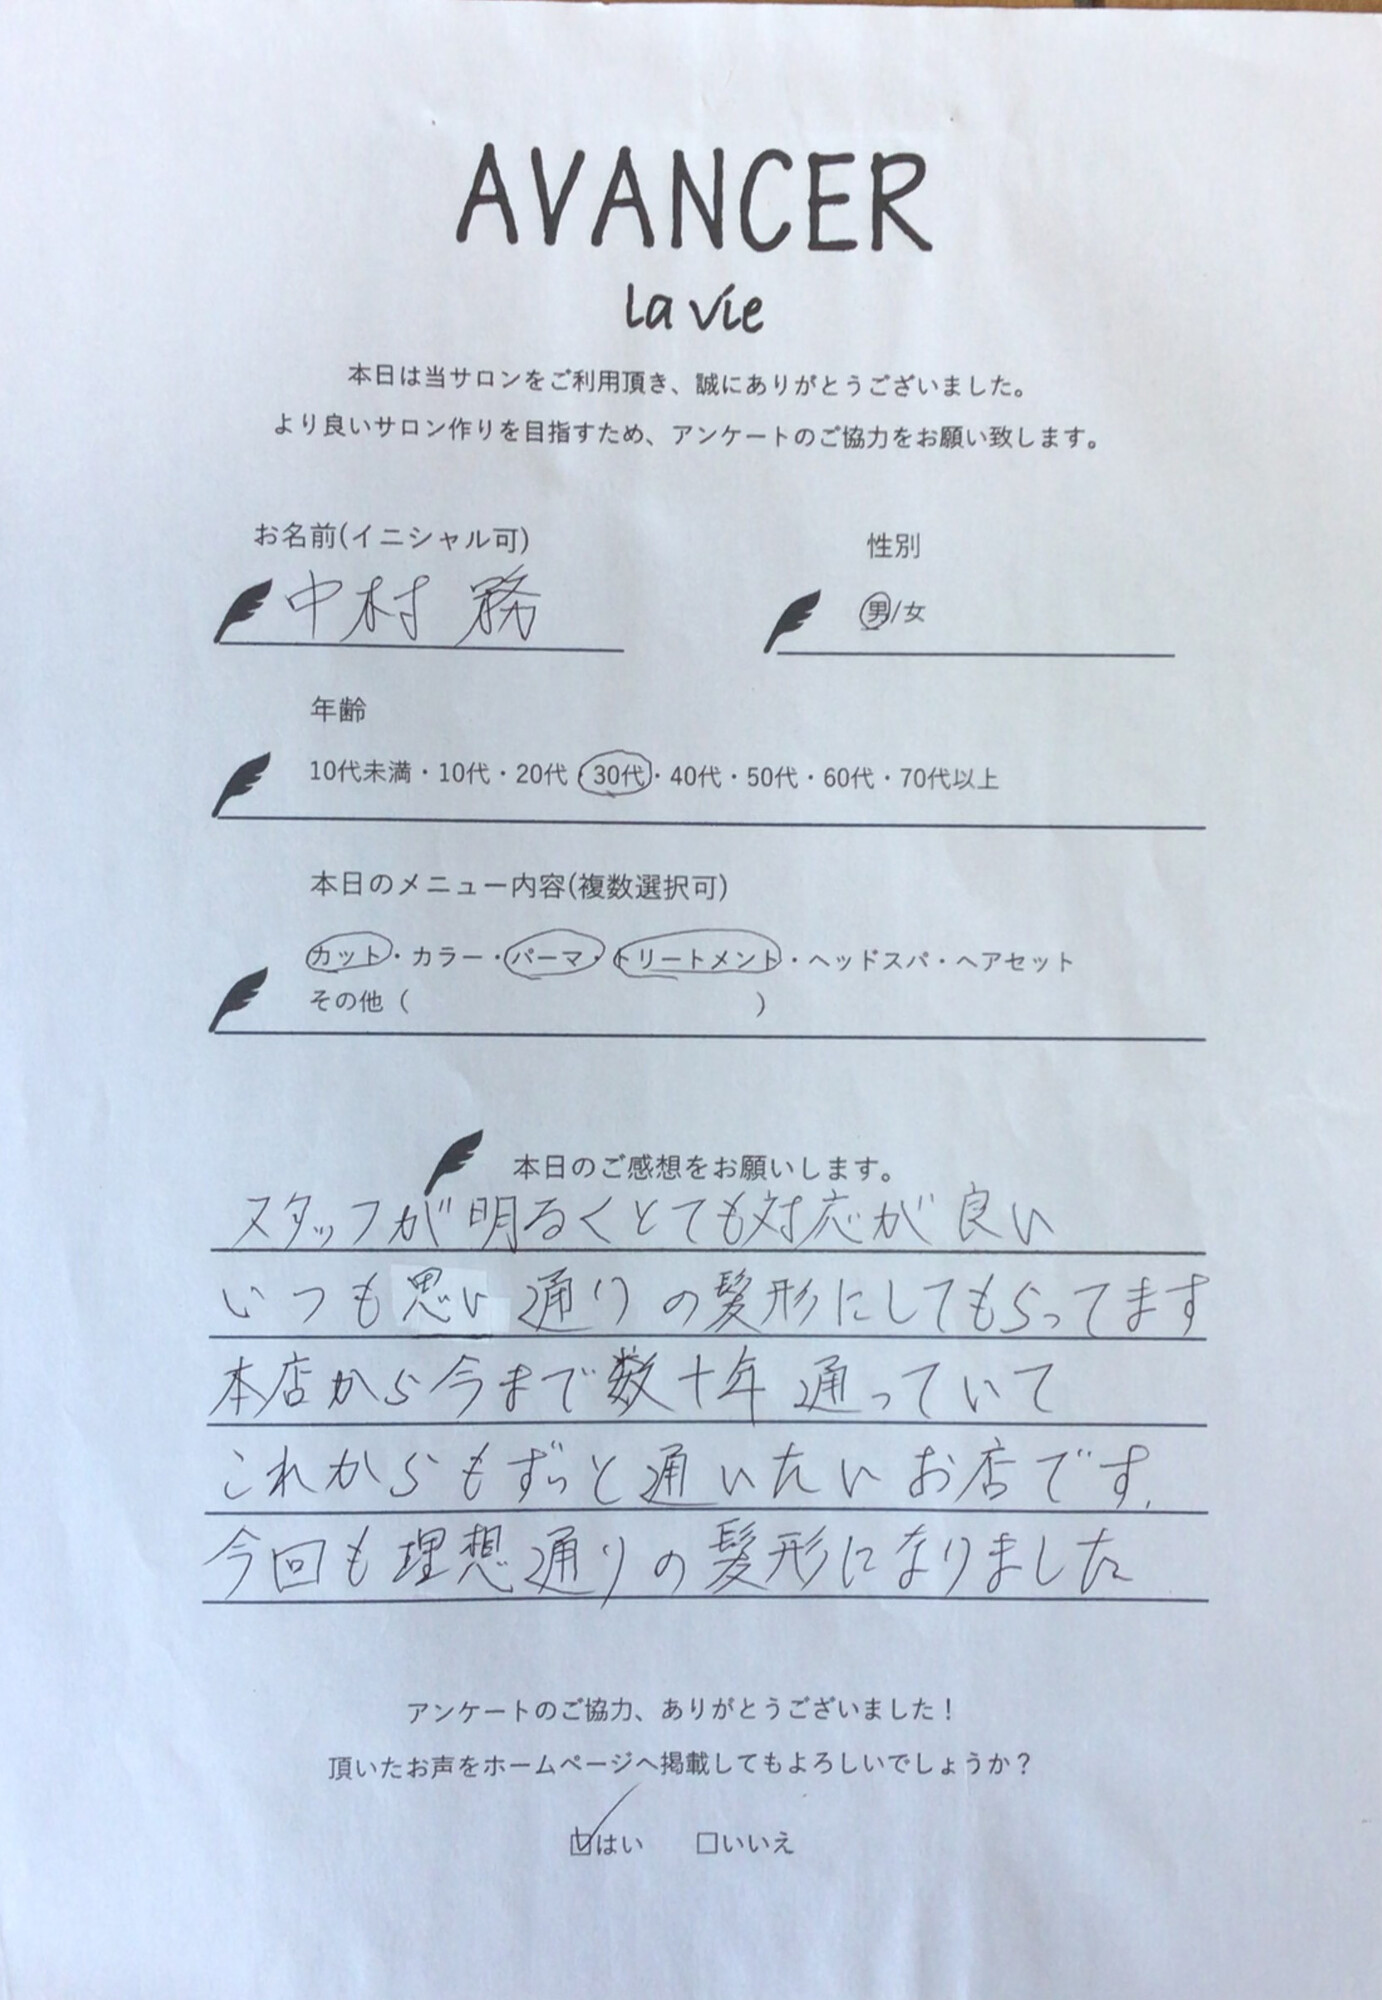 AVANCER
la vie
本日は当サロンをご利用頂き、誠にありがとうございました。
より良いサロン作りを目指すため、アンケートのご協力をお願い致します。
お名前(イニシャル可)
中村 務
性別
男/女
年齢
10代未満・10代・20代・30代・40代・50代・60代・70代以上
本日のメニュー内容(複数選択可)
カット・カラー・パーマ・トリートメント・ヘッドスパ・ヘアセット
その他（　　　　　）
本日のご感想をお願いします。
スタッフが明るくとても対応が良い
いつも思い通りの髪形にしてもらってます
本店から今まで数十年通っていて
これからもずっと通いたいお店です.
今回も理想通りの髪形になりました
アンケートのご協力、ありがとうございました！
頂いたお声をホームページへ掲載してもよろしいでしょうか？
☑はい　□いいえ